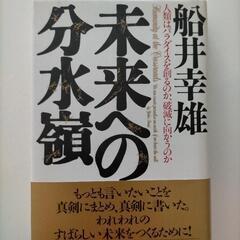 船井幸雄
人類はパラダイスを創るのか、破滅に向かうのか
未来への
分水嶺
もっとも言いたいことを
真剣にまとめ、真剣に書いた。
われわれの
すばらしい未来をつくるために!